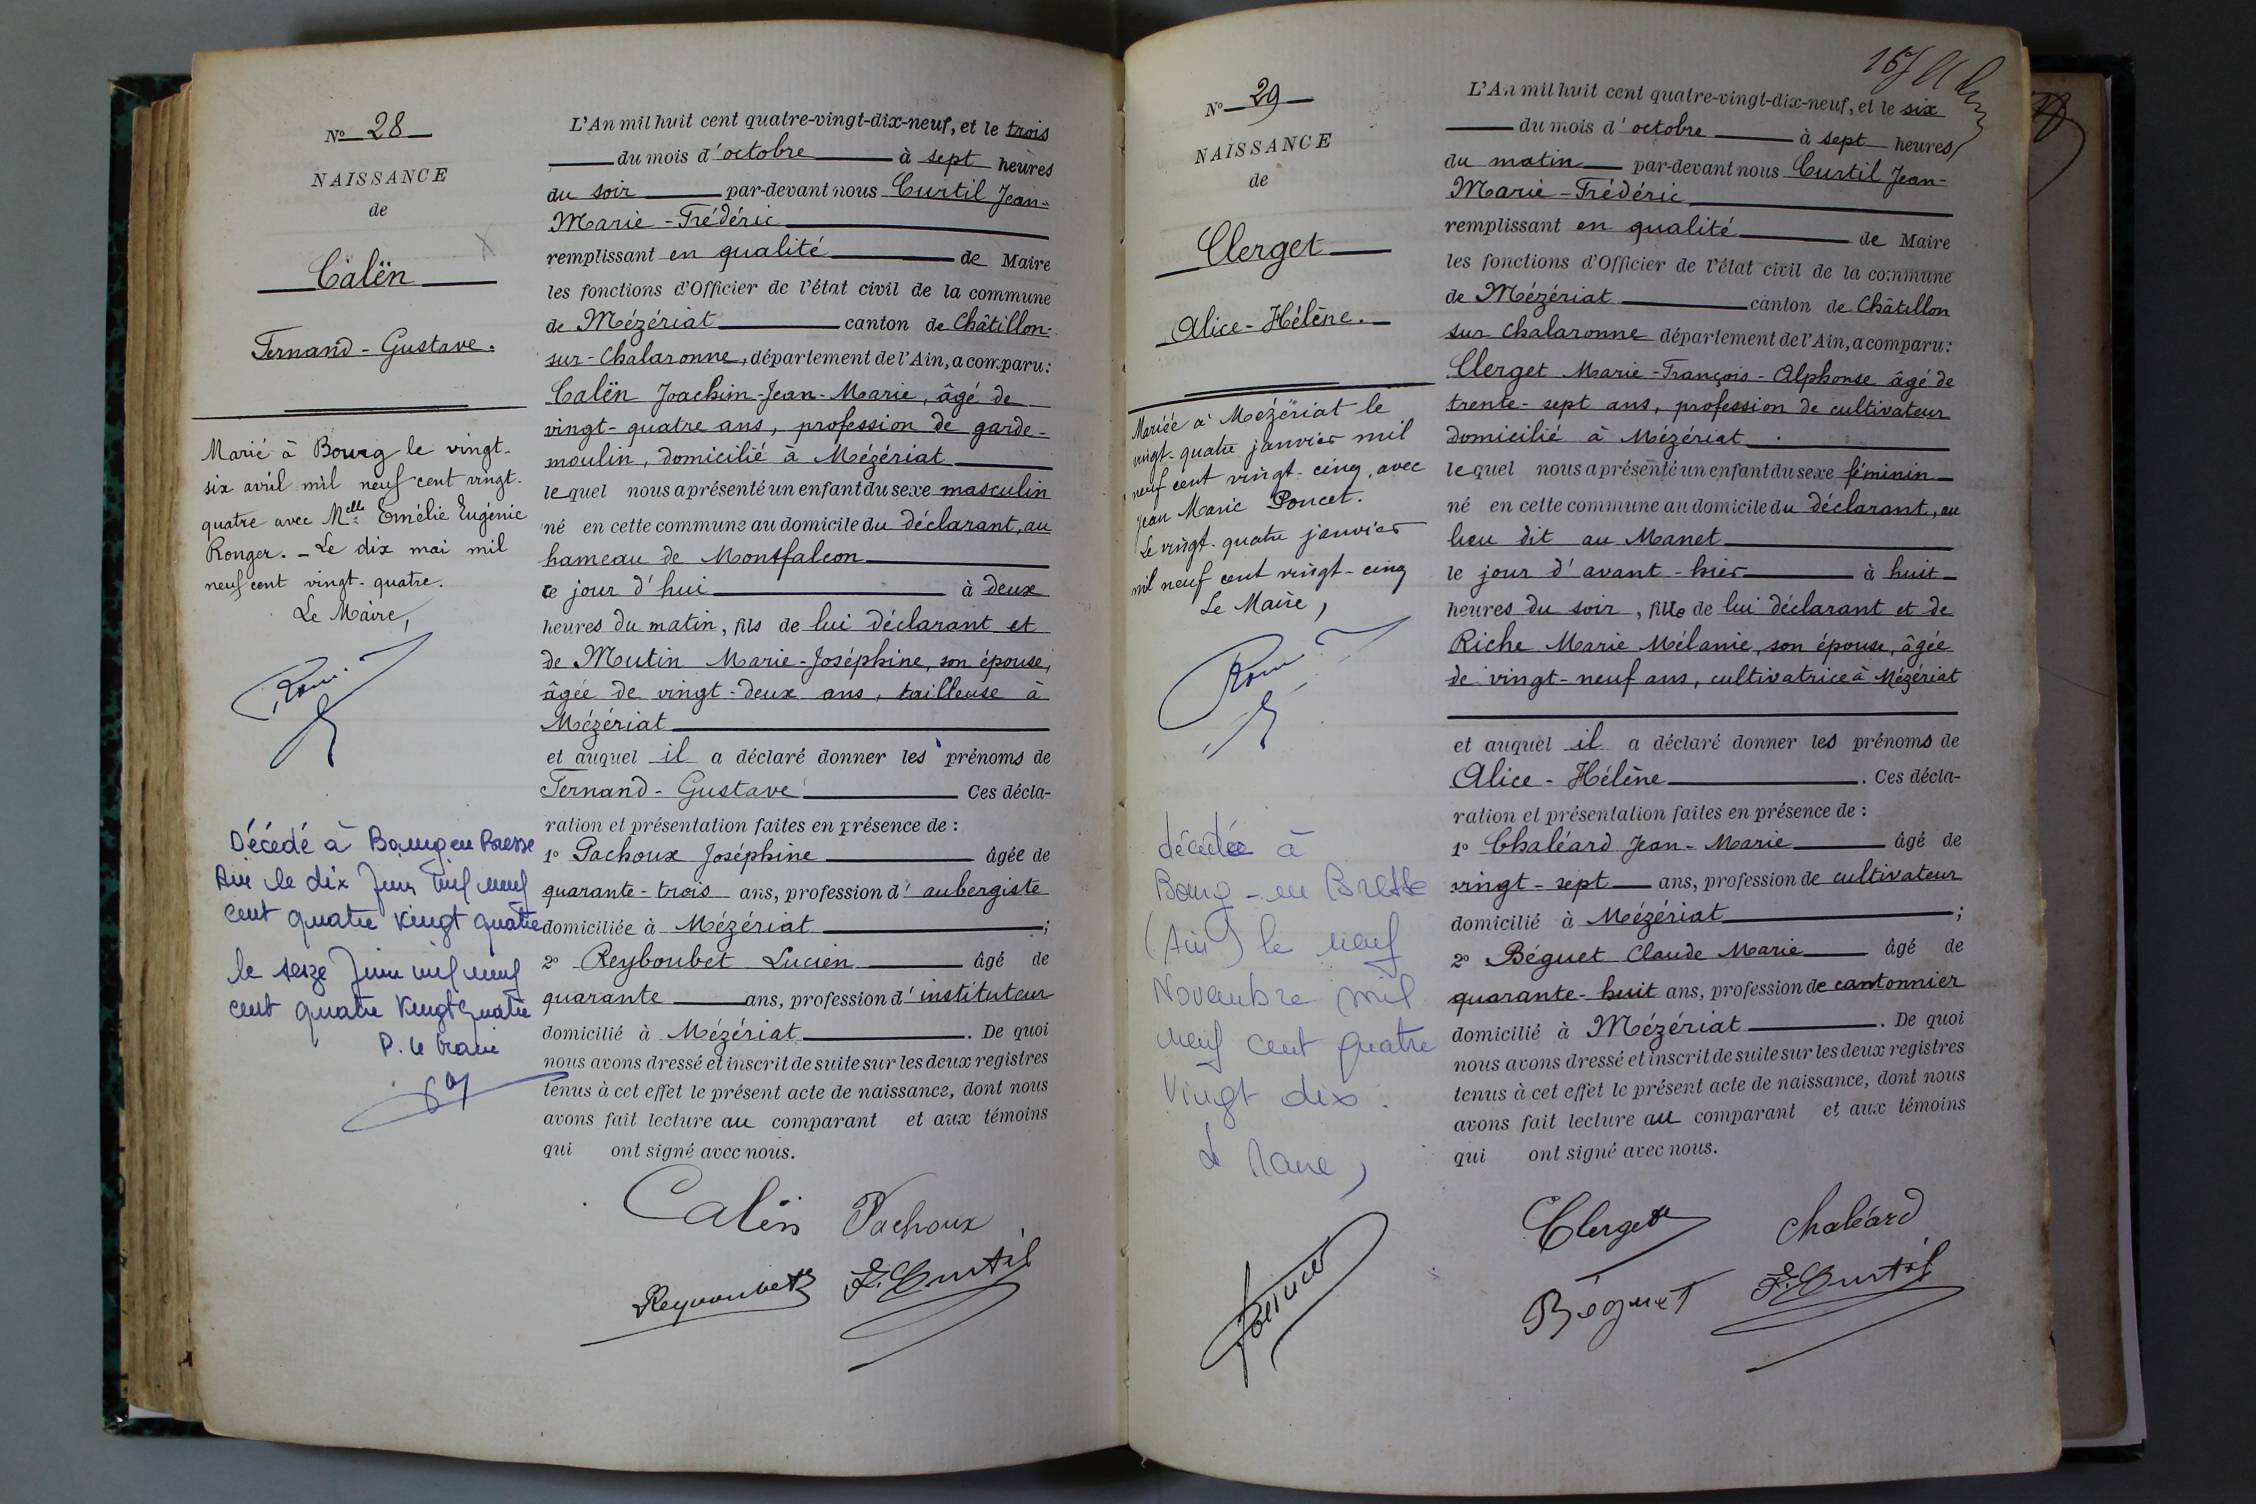 N° 28
NAISSANCE
de
Calën
Fernand-Gustave.
Marié à Bourg le vingt-
six avril mil neuf cent vingt-
quatre avec Melle Emélie Eugénie
Ronger. - Le dix mai mil
neuf cent vingt-quatre.
Le Maire,
Décédé à Bourg en Bresse
Ain le dix Juin mil neuf
cent quatre vingt quatre
le seize Juin mil neuf
cent quatre vingt quatre
P. le Maire
L'An mil huit cent quatre-vingt-dix-neuf, et le trois
du mois d'octobre à sept heures
du soir par-devant nous Curtil Jean-
Marie-Frédéric
remplissant en qualité de Maire
les fonctions d'Officier de l'état civil de la commune
de Mézériat canton de Châtillon-
sur-Chalaronne, département de l'Ain, a comparu:
Calën Joachim-Jean-Marie, âgé de
vingt-quatre ans, profession de garde-
moulin, domicilié à Mézériat
lequel nous a présenté un enfant du sexe masculin
né en cette commune au domicile du déclarant, au
hameau de Montfalcon
ce jour d'hui à deux
heures du matin, fils de lui déclarant et
de Mutin Marie-Joséphine, son épouse,
âgée de vingt-deux ans, tailleuse à
Mézériat
et auquel il a déclaré donner les prénoms de
Fernand-Gustave Ces décla-
ration et présentation faites en présence de :
1° Pachoux Joséphine âgée de
quarante-trois ans, profession d'aubergiste
domiciliée à Mézériat ;
2° Reyboubet Lucien âgé de
quarante ans, profession d'instituteur
domicilié à Mézériat . De quoi
nous avons dressé et inscrit de suite sur les deux registres
tenus à cet effet le présent acte de naissance, dont nous
avons fait lecture au comparant et aux témoins
qui ont signé avec nous.
Calën Pachoux
Reyboubet F. Curtil
167
N° 29
NAISSANCE
de
Clerget
Alice-Hélène.
Mariée à Mézériat le
vingt-quatre janvier mil
neuf cent vingt-cinq, avec
Jean Marie Poncet.
Le vingt-quatre janvier
mil neuf cent vingt-cinq
Le Maire,
décédée à
Bourg-en Bresse
(Ain) le neuf
Novembre mil
neuf cent quatre
Vingt dix.
Le Maire,
L'An mil huit cent quatre-vingt-dix-neuf, et le six
du mois d'octobre à sept heures
du matin par-devant nous Curtil Jean-
Marie-Frédéric
remplissant en qualité de Maire
les fonctions d'Officier de l'état civil de la commune
de Mézériat canton de Châtillon
sur Chalaronne département de l'Ain, a comparu:
Clerget Marie-François-Alphonse âgé de
trente-sept ans, profession de cultivateur
domicilié à Mézériat
lequel nous a présenté un enfant du sexe féminin
né en cette commune au domicile du déclarant, au
lieu dit au Manet
le jour d'avant-hier à huit
heures du soir, fille de lui déclarant et de
Riche Marie Mélanie, son épouse, âgée
de vingt-neuf ans, cultivatrice à Mézériat
et auquel il a déclaré donner les prénoms de
Alice-Hélène . Ces décla-
ration et présentation faites en présence de :
1° Chaléard Jean-Marie âgé de
vingt-sept ans, profession de cultivateur
domicilié à Mézériat ;
2° Béguet Claude Marie âgé de
quarante-huit ans, profession de cantonnier
domicilié à Mézériat . De quoi
nous avons dressé et inscrit de suite sur les deux registres
tenus à cet effet le présent acte de naissance, dont nous
avons fait lecture au comparant et aux témoins
qui ont signé avec nous.
Clerget Chaléard
Béguet F. Curtil